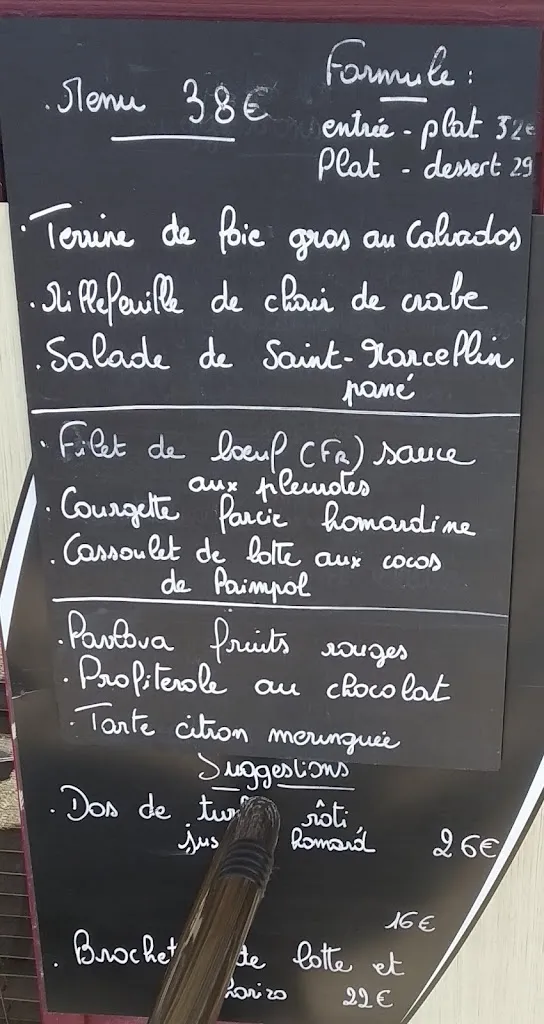 . Menu 38€
Formule :
entrée - plat 32€
Plat - dessert 29
. Terrine de foie gras au Calvados
. Millefeuille de chair de crabe
. Salade de Saint-Marcellin
pané
. Filet de boeuf (FR) sauce
aux pleurotes
. Courgette farcie homardine
. Cassoulet de lotte aux cocos
de Paimpol
. Pavlova fruits rouges
. Profiterole au chocolat
. Tarte citron meringuée
Suggestions
. Dos de rôti,
jus homard 26€
16€
. Brochet de lotte et
22€